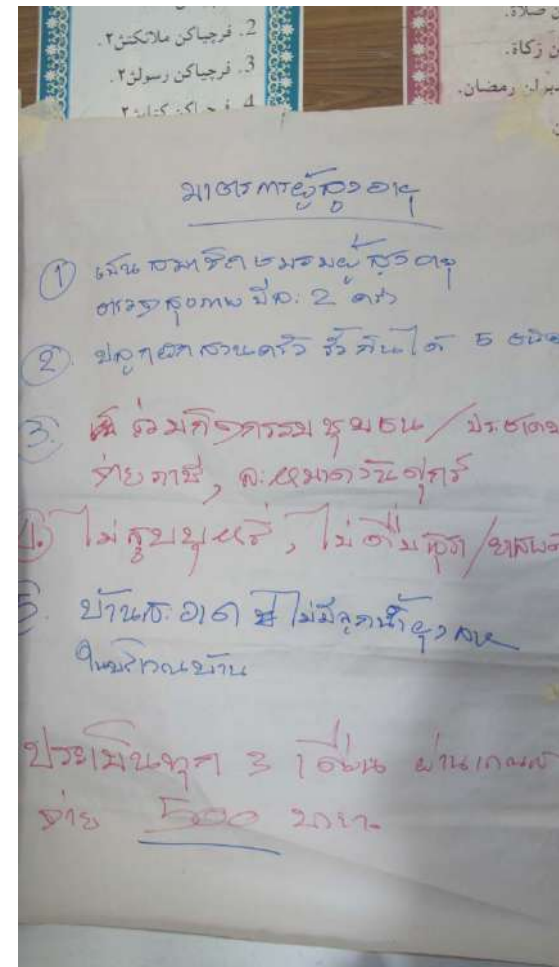 2. فرچياکن ملائكتن٢.
3. فرچياکن رسولن٢.
4. فرچياکن كتابن٢
صلاة.
زكاة.
رمضان.
มาตรการผู้สูงอายุ
① เป็นสมาชิกชมรมผู้สูงอายุ
ตรวจสุขภาพปีละ 2 ครั้ง
②. ปลูกผักสวนครัว รั้วกินได้ 5 ชนิด
3. ร่วมกิจกรรมชุมชน / ประชาคม
จ่ายภาษี, ละหมาดวันศุกร์
4. ไม่สูบบุหรี่, ไม่ดื่มสุรา/ยาเสพติ
5. บ้านสะอาด ไม่มีลูกน้ำยุงลาย
ในบริเวณบ้าน
ประเมินทุก 3 เดือน ผ่านเกณฑ์
จ่าย 500 บาท